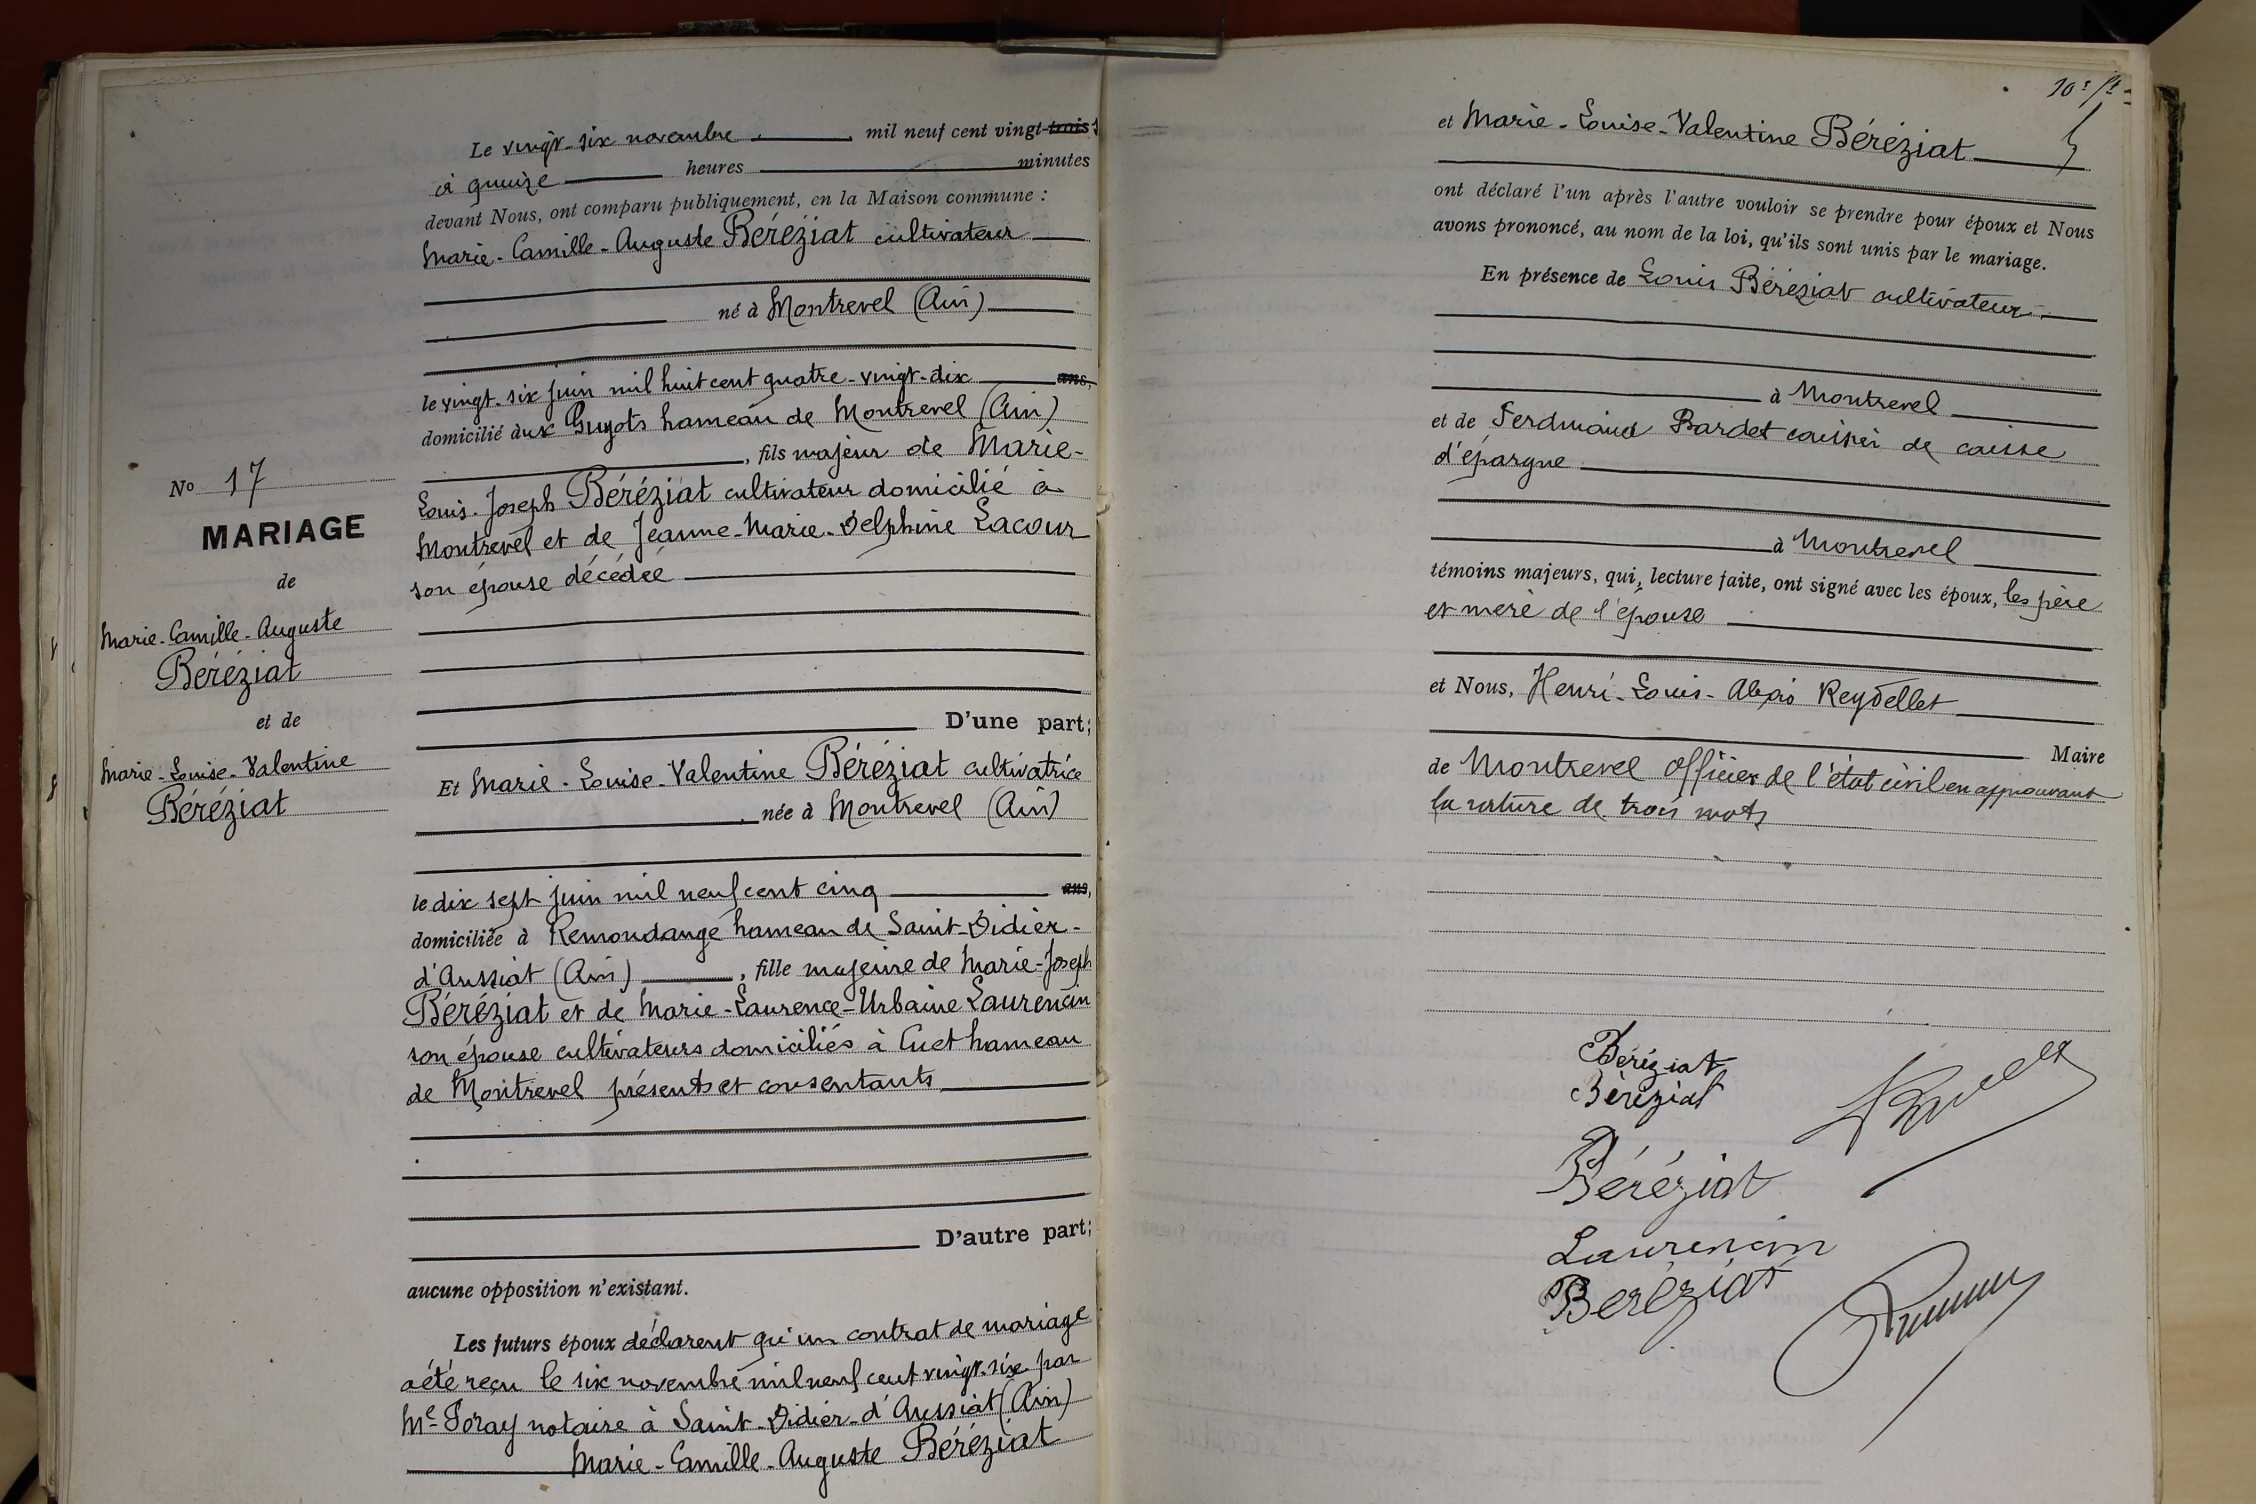 No 17
MARIAGE
de
Marie-Camille-Auguste
Béréziat
et de
Marie-Louise-Valentine
Béréziat
Le vingt-six novembre mil neuf cent vingt-trois
à quinze heures minutes
devant Nous, ont comparu publiquement, en la Maison commune :
Marie-Camille-Auguste Béréziat cultivateur
né à Montrevel (Ain)
le vingt-six juin mil huit cent quatre-vingt-dix ans,
domicilié aux Guyots hameau de Montrevel (Ain)
, fils majeur de Marie-
Louis-Joseph Béréziat cultivateur domicilié à
Montrevel et de Jeanne-Marie-Delphine Lacour
son épouse décédée
D'une part;
Et Marie-Louise-Valentine Béréziat cultivatrice
née à Montrevel (Ain)
le dix sept juin mil neuf cent cinq ans,
domiciliée à Remondange hameau de Saint-Didier-
d'Aussiat (Ain), fille majeure de Marie-Joseph
Béréziat et de Marie-Laurence-Urbaine Laurencin
son épouse cultivateurs domiciliés à Cuet hameau
de Montrevel présents et consentants
D'autre part;
aucune opposition n'existant.
Les futurs époux déclarent qu'un contrat de mariage
a été reçu le six novembre mil neuf cent vingt-six par
Me Foray notaire à Saint-Didier-d'Aussiat (Ain)
Marie-Camille-Auguste Béréziat
et Marie-Louise-Valentine Béréziat
ont déclaré l'un après l'autre vouloir se prendre pour époux et Nous
avons prononcé, au nom de la loi, qu'ils sont unis par le mariage.
En présence de Louis Béréziat cultivateur
à Montrevel
et de Ferdinand Bardet caissier de caisse
d'épargne
à Montrevel
témoins majeurs, qui, lecture faite, ont signé avec les époux, les père
et mère de l'épouse
et Nous, Henri-Louis-Alexis Reydellet
Maire
de Montrevel officier de l'état civil en approuvant
la rature de trois mots
Béréziat
Béréziat
Béréziat
Laurencin
Beréziat